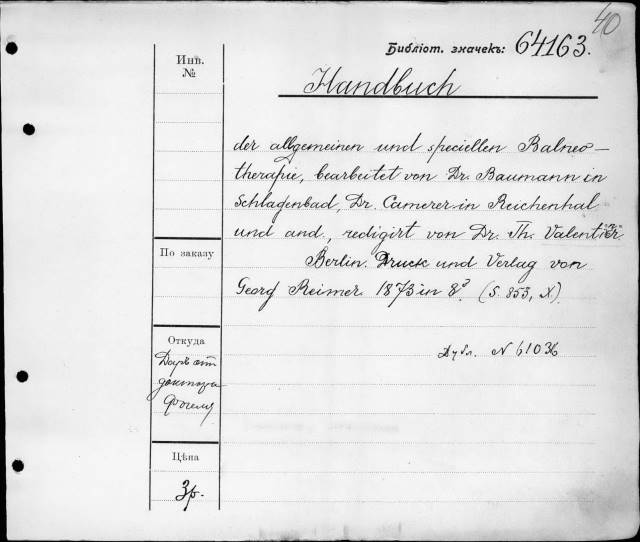 40
Библіот. значекъ: 64163.
Инв.
№
Handbuch
der allgemeinen und speciellen Balneo-
therapie, bearbeitet von Dr. Baumann in
Schlagenbad, Dr. Camerer in Reichenhal
und and., redigirt von Dr. Th. Valentiner.
Berlin. Druck und Verlag von
Georg Reimer. 1873 in 8º. (S. 853, X).
По заказу
Дубл. N 61036
Откуда
Даръ отъ
доктора
Цѣна
3 р.